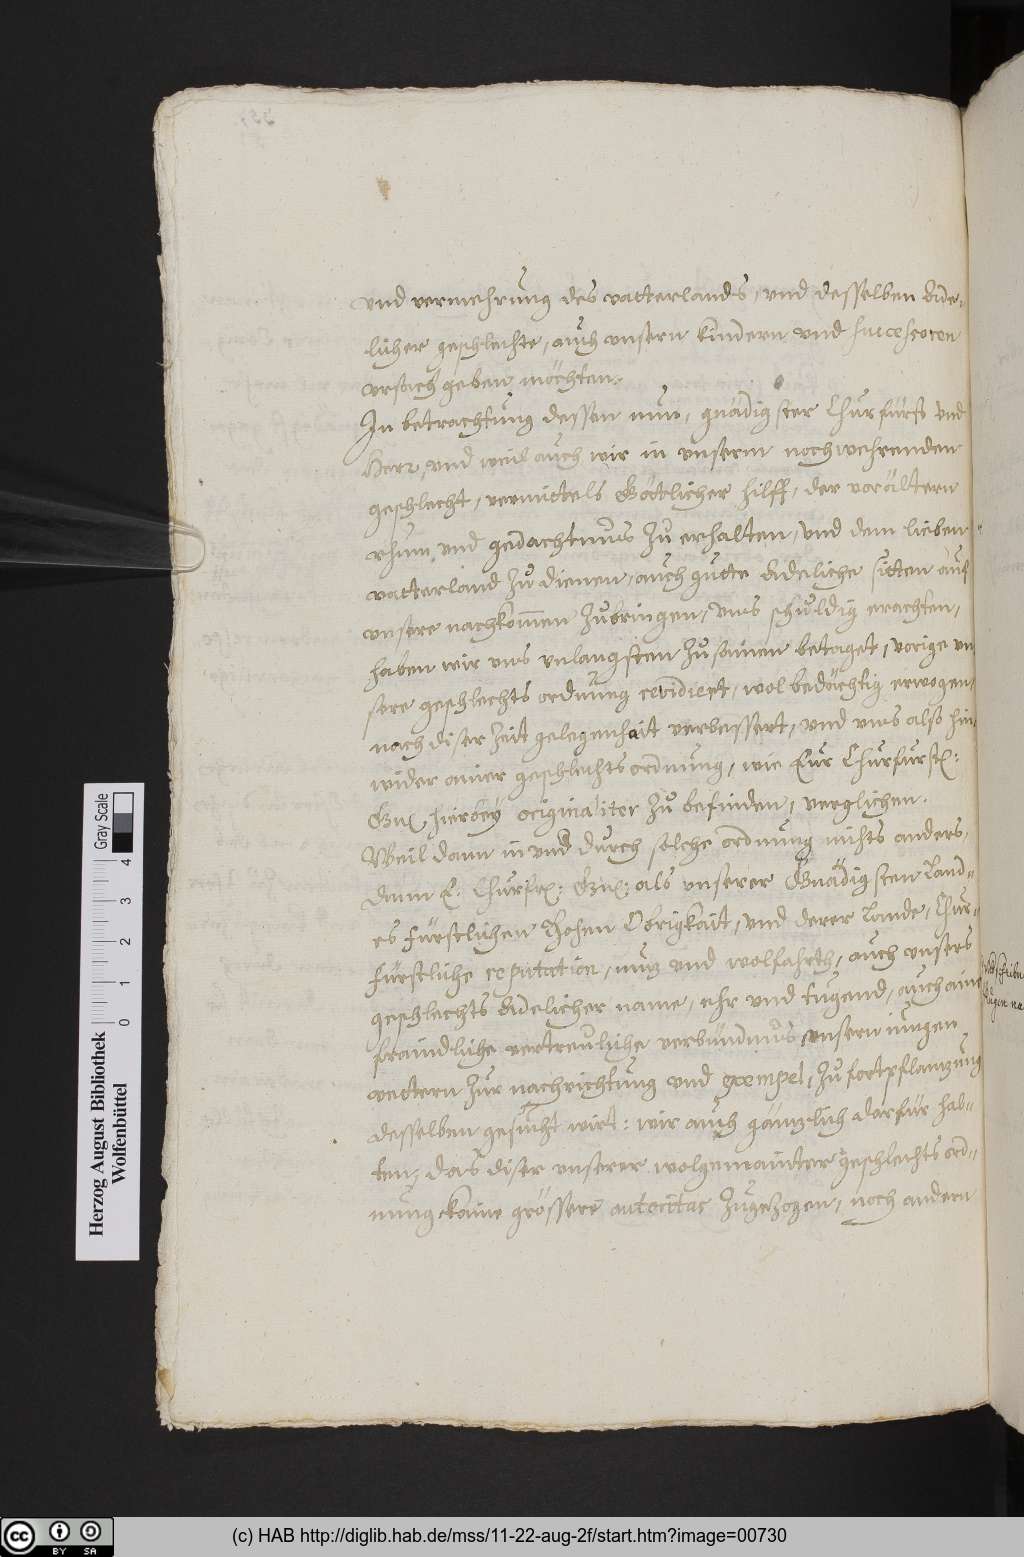 vnd vermehrung des vatterlands, vnd desselben Ade-
licher geschlechte, auch vnsern kindern vnd successoren
vrsach geben möchten.
In betrachtung dessen nun, gnädigster Churfürst vnd
Herr, vnd weil auch wir in vnserm nochwehrenden
geschlecht, vermittels Göttlicher hilff, der vorältern
rhum vnd gedachtnus zu erhalten, vnd dem lieben
vatterland zu dienen, auch gutte Adeliche sitten auf
vnsere nachkom̄en zubringen, vns schuldig erachten,
haben wir vns vnlangsten zusamen betaget, vorige vn
sere geschlechts ordnung revidiert, wol bedächtig erwogen,
nach diser zeit gelegenhait verbessert, vnd vns also hin-
wider ainer geschlechtsordnung, wie Eur Churfürstl:
Gn: hierbey originaliter zu befinden, verglichen.
Weil dann in vnd durch solche ordnung nichts anders,
dann E: Churfl: Gn: als vnserer Gnädigsten Land-
es fürstlichen Hohen Obrigkait, vnd derer Lande, Chur-
fürstliche reputation, nuz vnd wolfahrth, auch vnsers
geschlechts Adelicher name, ehr vnd tugend, auch aine
fraindliche vertreuliche verbündnus vnsern iungen
vettern zur nachrichtung vnd exempel, zu fortpflanzung
desselben gesucht wirt: wir auch gänzlich darfür hal-
ten, das diser vnserer wolgemainter geschlechts ord-
nung kaine grössere autoritas zugezogen, noch andern
Herzog August Bibliothek
Wolfenbüttel
0 1 2 3 4
Gray Scale
cc BY SA
(c) HAB http://diglib.hab.de/mss/11-22-aug-2f/start.htm?image=00730